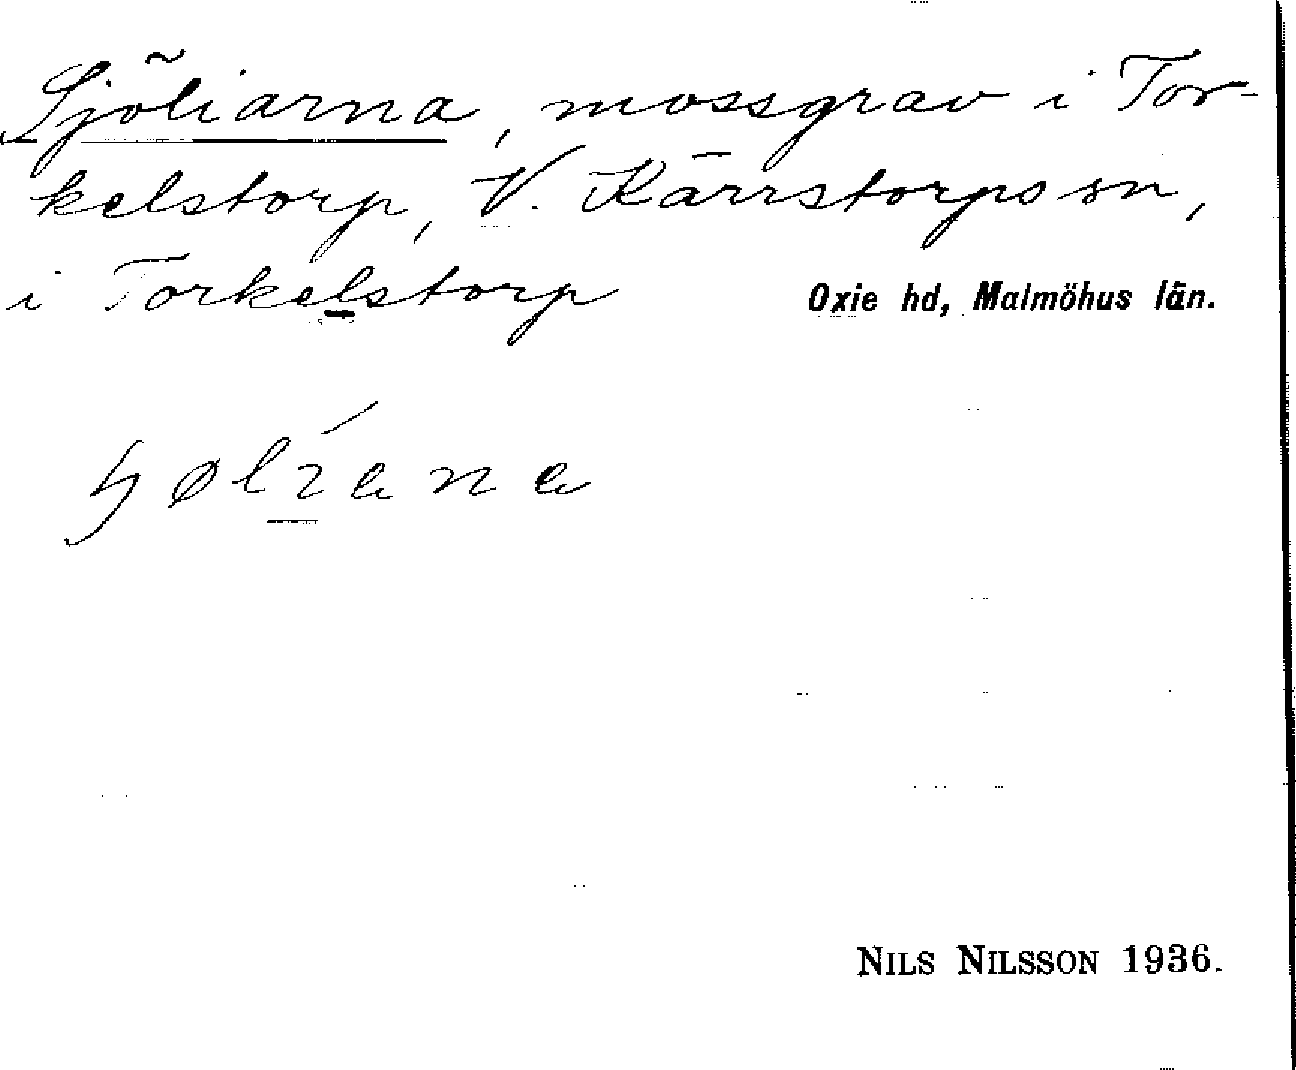 Sjöliarna, mossgrav i Tor-
kelstorp, V. Kärrstorps sn,
i Torkelstorp Oxie hd, Malmöhus län.
NILS NILSSON 1936.